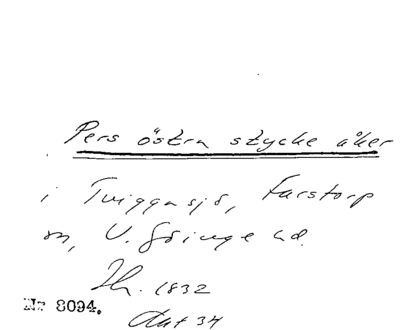 Pers östra stycke åker
i Tviggasjö, Farstorp
sn, V. Göinge hd.
Sk. 1832
Nr 8094.
34